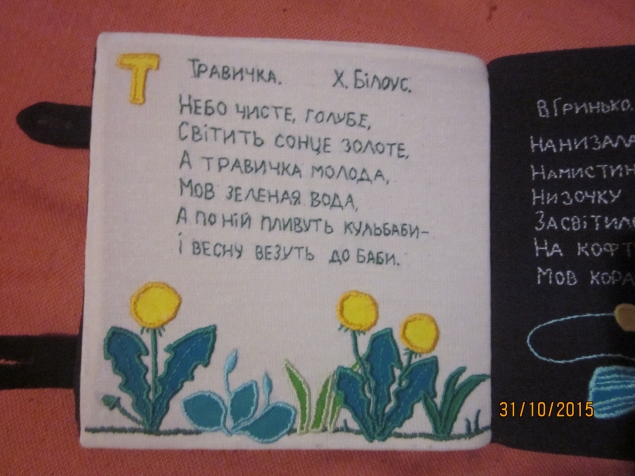 Т
Травичка. Х. Білоус.
Небо чисте, голубе,
Світить сонце золоте,
А травичка молода,
Мов зеленая вода,
А по ній пливуть кульбаби–
і весну везуть до баби.
В. Гринько.
Нанизала
Намистин
Низочку
Засвітил
На кофт
Мов кора
31/10/2015